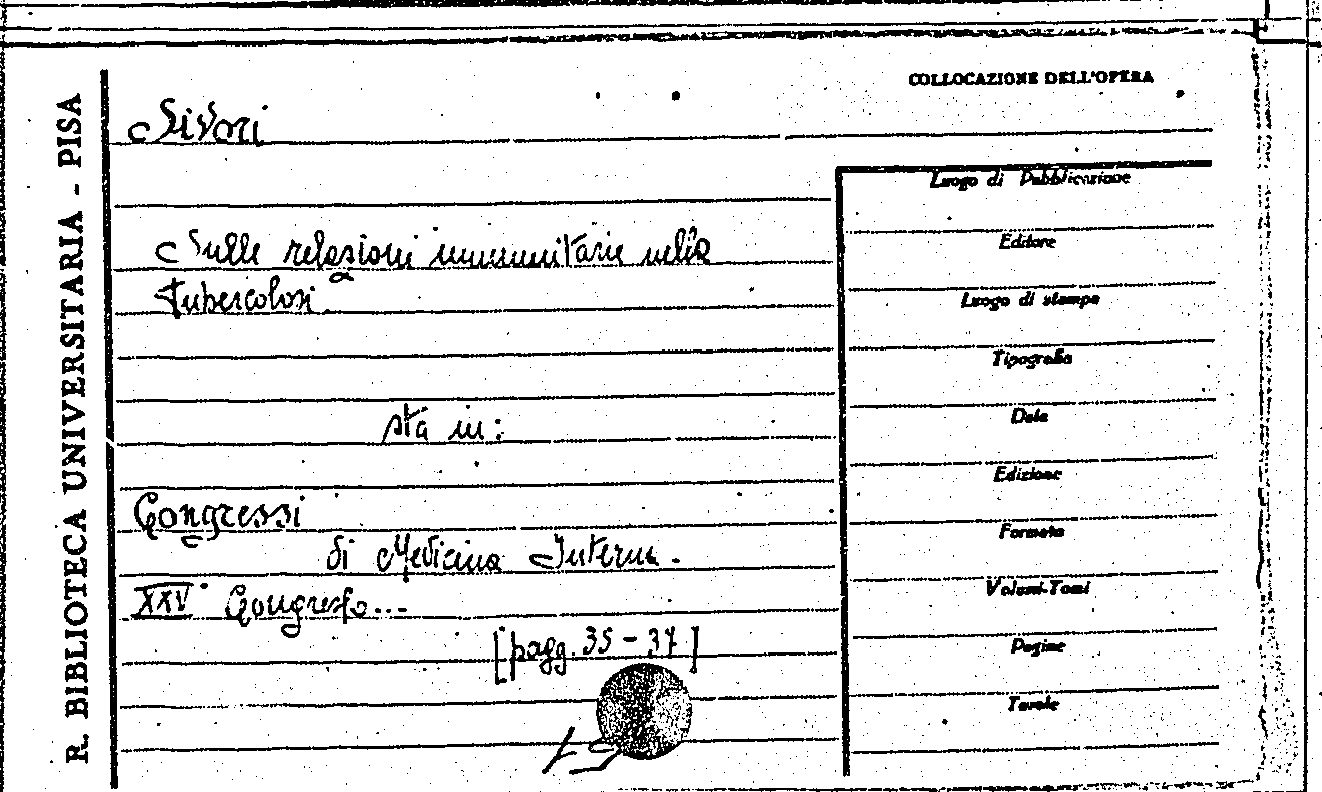 R. BIBLIOTECA UNIVERSITARIA - PISA
COLLOCAZIONE DELL'OPERA
Sivori
Sulle relazioni immunitarie nella
tubercolosi.
sta in:
Congressi
di Medicina Interna.
XXV° Congresso...
[pagg. 35-37]
Luogo di Pubblicazione
Editore
Luogo di stampa
Tipografia
Data
Edizione
Formato
Volumi-Tomi
Pagine
Tavole